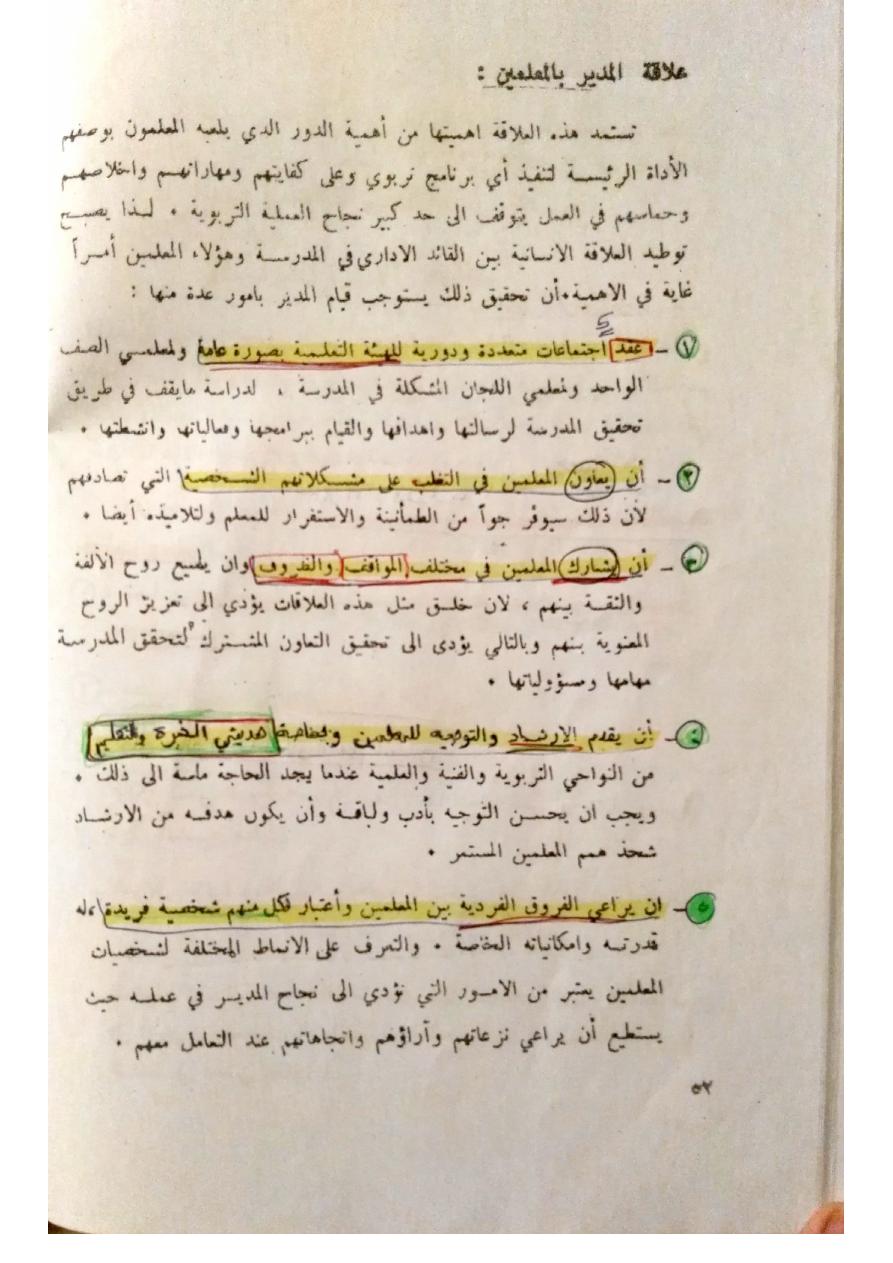 علاقة المدير بالمعلمين :
تستمد هذه العلاقة اهميتها من أهمية الدور الذي يلعبه المعلمون بوصفهم
الأداة الرئيسة لتنفيذ أي برنامج تربوي وعلى كفايتهم ومهاراتهم واخلاصهم
وحماسهم في العمل يتوقف الى حد كبير نجاح العملية التربوية . لهذا يصبح
توطيد العلاقة الانسانية بين القائد الاداري في المدرسة وهؤلاء المعلمين أمراً
غاية في الاهمية . أن تحقيق ذلك يستوجب قيام المدير بامور عدة منها :
١ – عقد اجتماعات متعددة ودورية للهيئة التعلمية بصورة عامة ولمعلمي الصف
الواحد ولمعلمي اللجان المشكلة في المدرسة ، لدراسة مايقف في طريق
تحقيق المدرسة لرسالتها واهدافها والقيام ببرامجها وفعالياتها وانشطتها .
٢ – أن يعاون المعلمين في التغلب على مشكلاتهم الشخصية التي تصادفهم
لأن ذلك سيوفر جواً من الطمأنينة والاستقرار للمعلم ولتلاميذه أيضا .
٣ – أن يشارك المعلمين في مختلف المواقف والظروف وان يطبع روح الألفة
والثقة بينهم ، لان خلق مثل هذه العلاقات يؤدي الى تعزيز الروح
المعنوية بنهم وبالتالي يؤدى الى تحقيق التعاون المشترك لتحقق المدرسة
مهامها ومسؤولياتها .
٤ – أن يقدم الارشاد والتوجيه للمعلمين وبخاصة حديثي الخبرة والتعليم
من النواحي التربوية والفنية والعلمية عندما يجد الحاجة ماسة الى ذلك .
ويجب ان يحسن التوجيه بأدب ولباقة وأن يكون هدفه من الارشاد
شحذ همم المعلمين المستمر .
٥ – ان يراعي الفروق الفردية بين المعلمين وأعتبار فكل منهم شخصية فريدة ، له
قدرته وامكانياته الخاصة . والتعرف على الانماط المختلفة لشخصيات
المعلمين يعتبر من الامور التي تؤدي الى نجاح المدير في عمله حيث
يستطيع أن يراعي نزعاتهم وآراؤهم واتجاهاتهم عند التعامل معهم .
٥٣